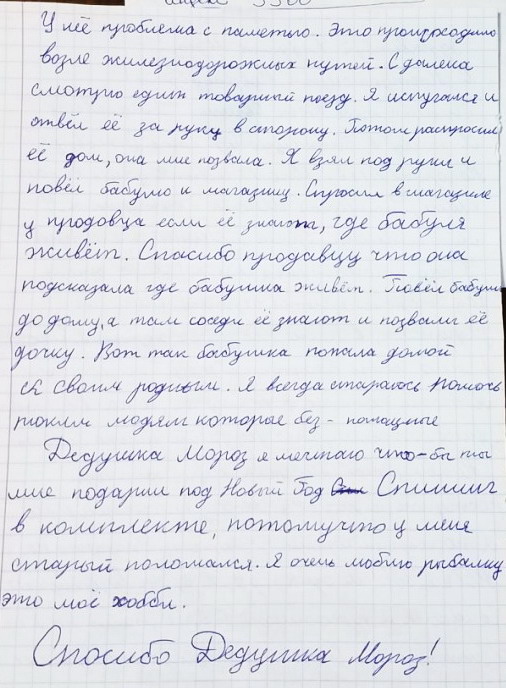 У неё проблема с паметью. Это происходило
возле жилезнодорожных путей. С далека
смотрю едит товарный поезд. Я испугался и
отвёл её за руку в сторону. Потом распросил
её дом, она мне позвала. Я взял под руки и
повёл бабулю к магазину. Спросил в магазине
у продовца если её знают, где бабуля
живёт. Спасибо продавцу что она
подсказала где бабушка живёт. Повёл бабушк
до дому, а там соседи её знают и позвали её
дочку. Вот так бабушка попала домой
к своим родным. Я всегда стараюсь помочь
таким людям которые без-помащные
Дедушка Мороз я мечтаю что-бы ты
мне подарил под Новый Год Спининг
в комплекте, потомучто у меня
старый поломался. Я очень люблю рыбалку
это моё хобби.
Спосибо Дедушка Мороз!